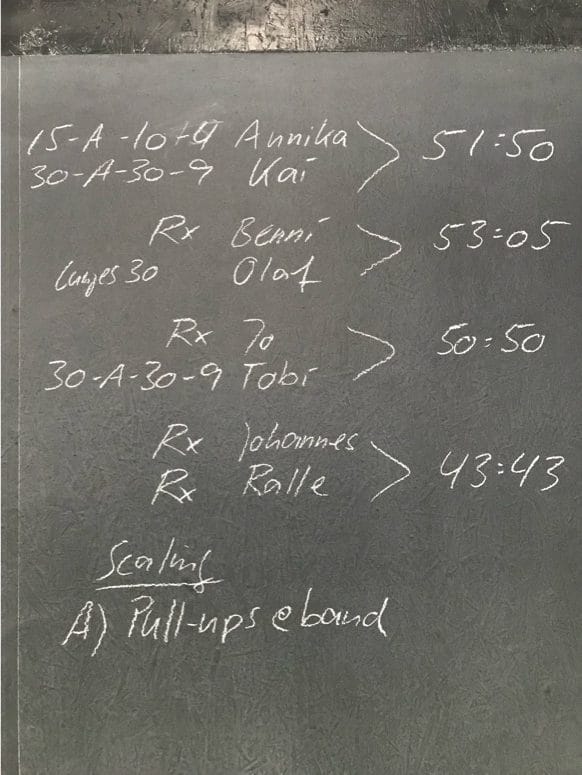 15-A-10-9 Annika
30-A-30-9 Kai > 51:50
Rx Benni
Lunges 30 Olaf > 53:05
Rx Jo
30-A-30-9 Tobi > 50:50
Rx Johannes
Rx Ralle > 43:43
Scaling
A) Pull-ups @ band